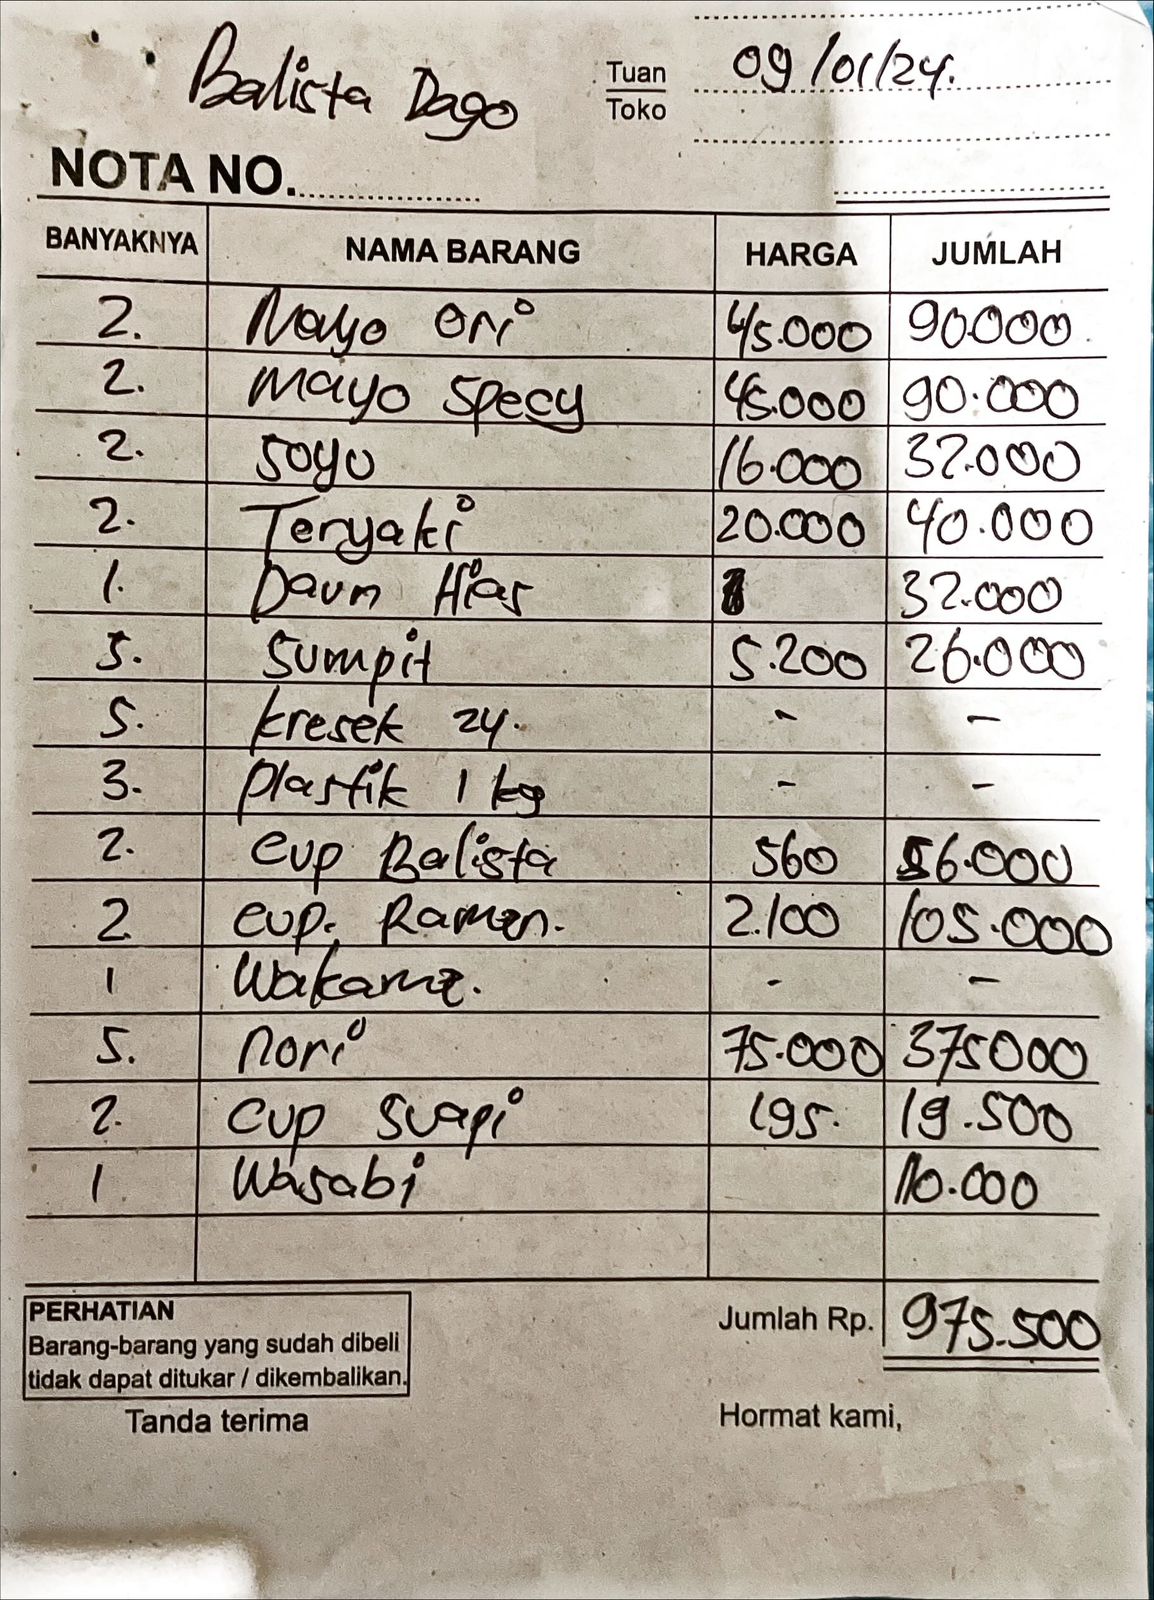 Balista Dago
Tuan
Toko
09/01/24.
NOTA NO.
BANYAKNYA NAMA BARANG HARGA JUMLAH
2. Mayo Ori 45.000 90.000
2. Mayo Specy 45.000 90.000
2. Soyu 16.000 32.000
2. Teryaki 20.000 40.000
1. Daun Hias 32.000
5. Sumpit 5.200 26.000
5. kresek 24. - -
3. Plastik 1 kg - -
2. Cup Balista 560 56.000
2 Cup. Ramen. 2.100 105.000
1 Wakame. - -
5. Nori 75.000 375000
2. Cup Suapi 195. 19.500
1 Wasabi 110.000
PERHATIAN
Barang-barang yang sudah dibeli
tidak dapat ditukar / dikembalikan.
Jumlah Rp. 975.500
Tanda terima Hormat kami,